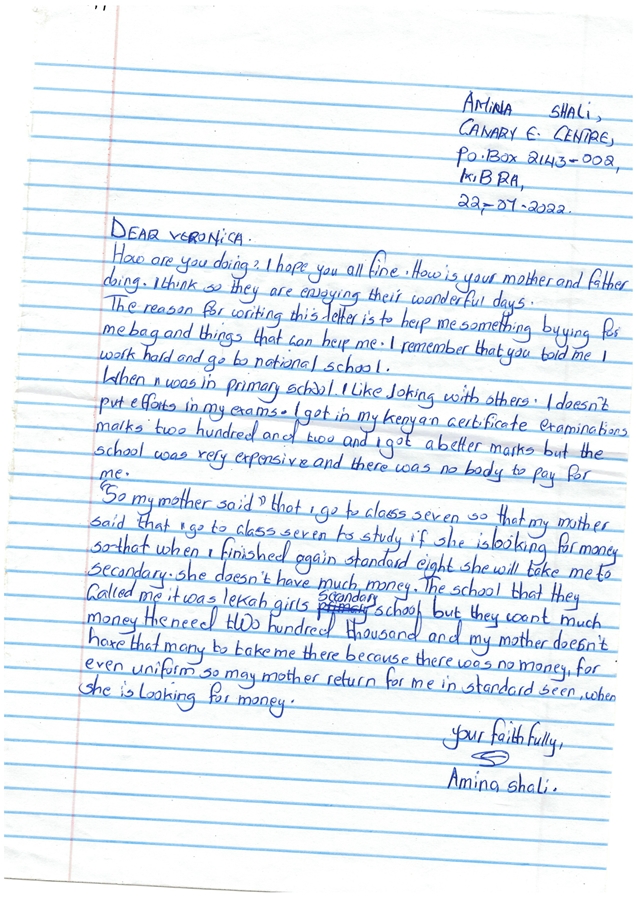 AMINA SHALI,
CANARY E. CENTRE,
P.O. BOX 2143-002,
KIBRA,
22-07-2022.
DEAR VERONICA.
How are you doing? I hope you all fine. How is your mother and father
doing. I think so they are enjoying their wonderful days.
The reason for writing this letter is to help me something byying for
me bag and things that can help me. I remember that you told me I
work hard and go to national school.
When I was in primary school. I like Joking with others. I doesn't
put efforts in my exams. I got in my kenyan certificate examinations
marks two hundred and two and I got a better marks but the
school was very expensive and there was no body to pay for
me.
"So my mother said" that I go to class seven so that my mother
said that I go to class seven to study if she is looking for money
so that when I finished again standard eight she will take me to
secondary. she doesn't have much money. The school that they
called me it was lekah girls Secondary school but they want much
money the need two hundred thousand and my mother doesn't
have that many to take me there because there was no money, for
even uniform so may mother return for me in standard seen, when
she is looking for money.
your faithfully,
Amina shali.